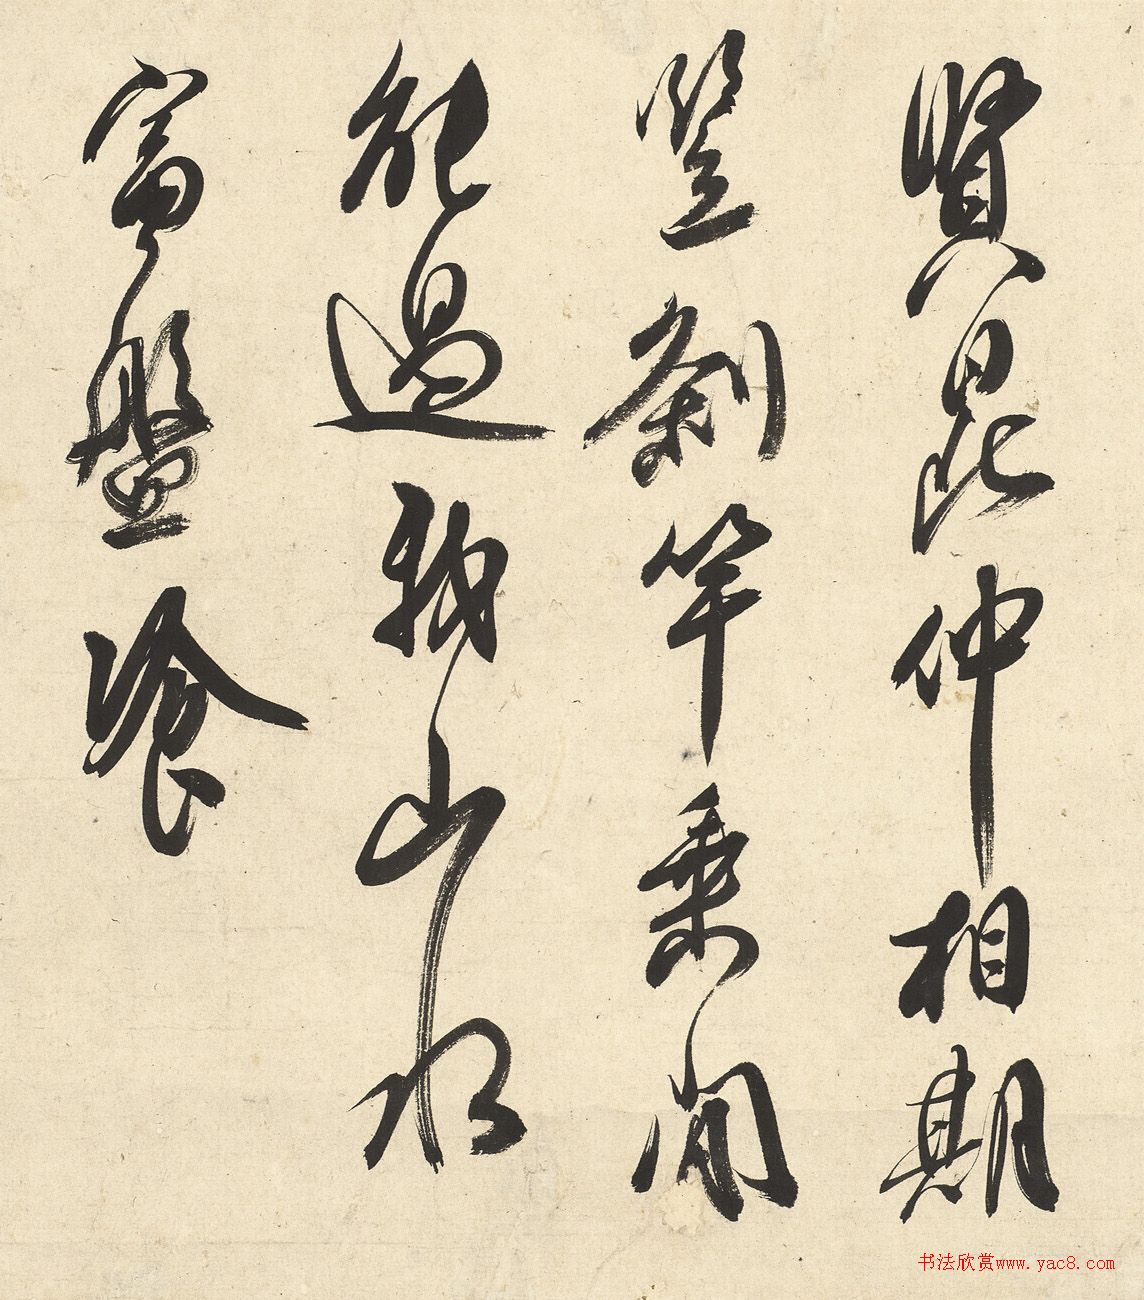 賢昆仲相期
笠釣竿乘閒
能過我山水
富盤飡
书法欣赏www.yac8.com